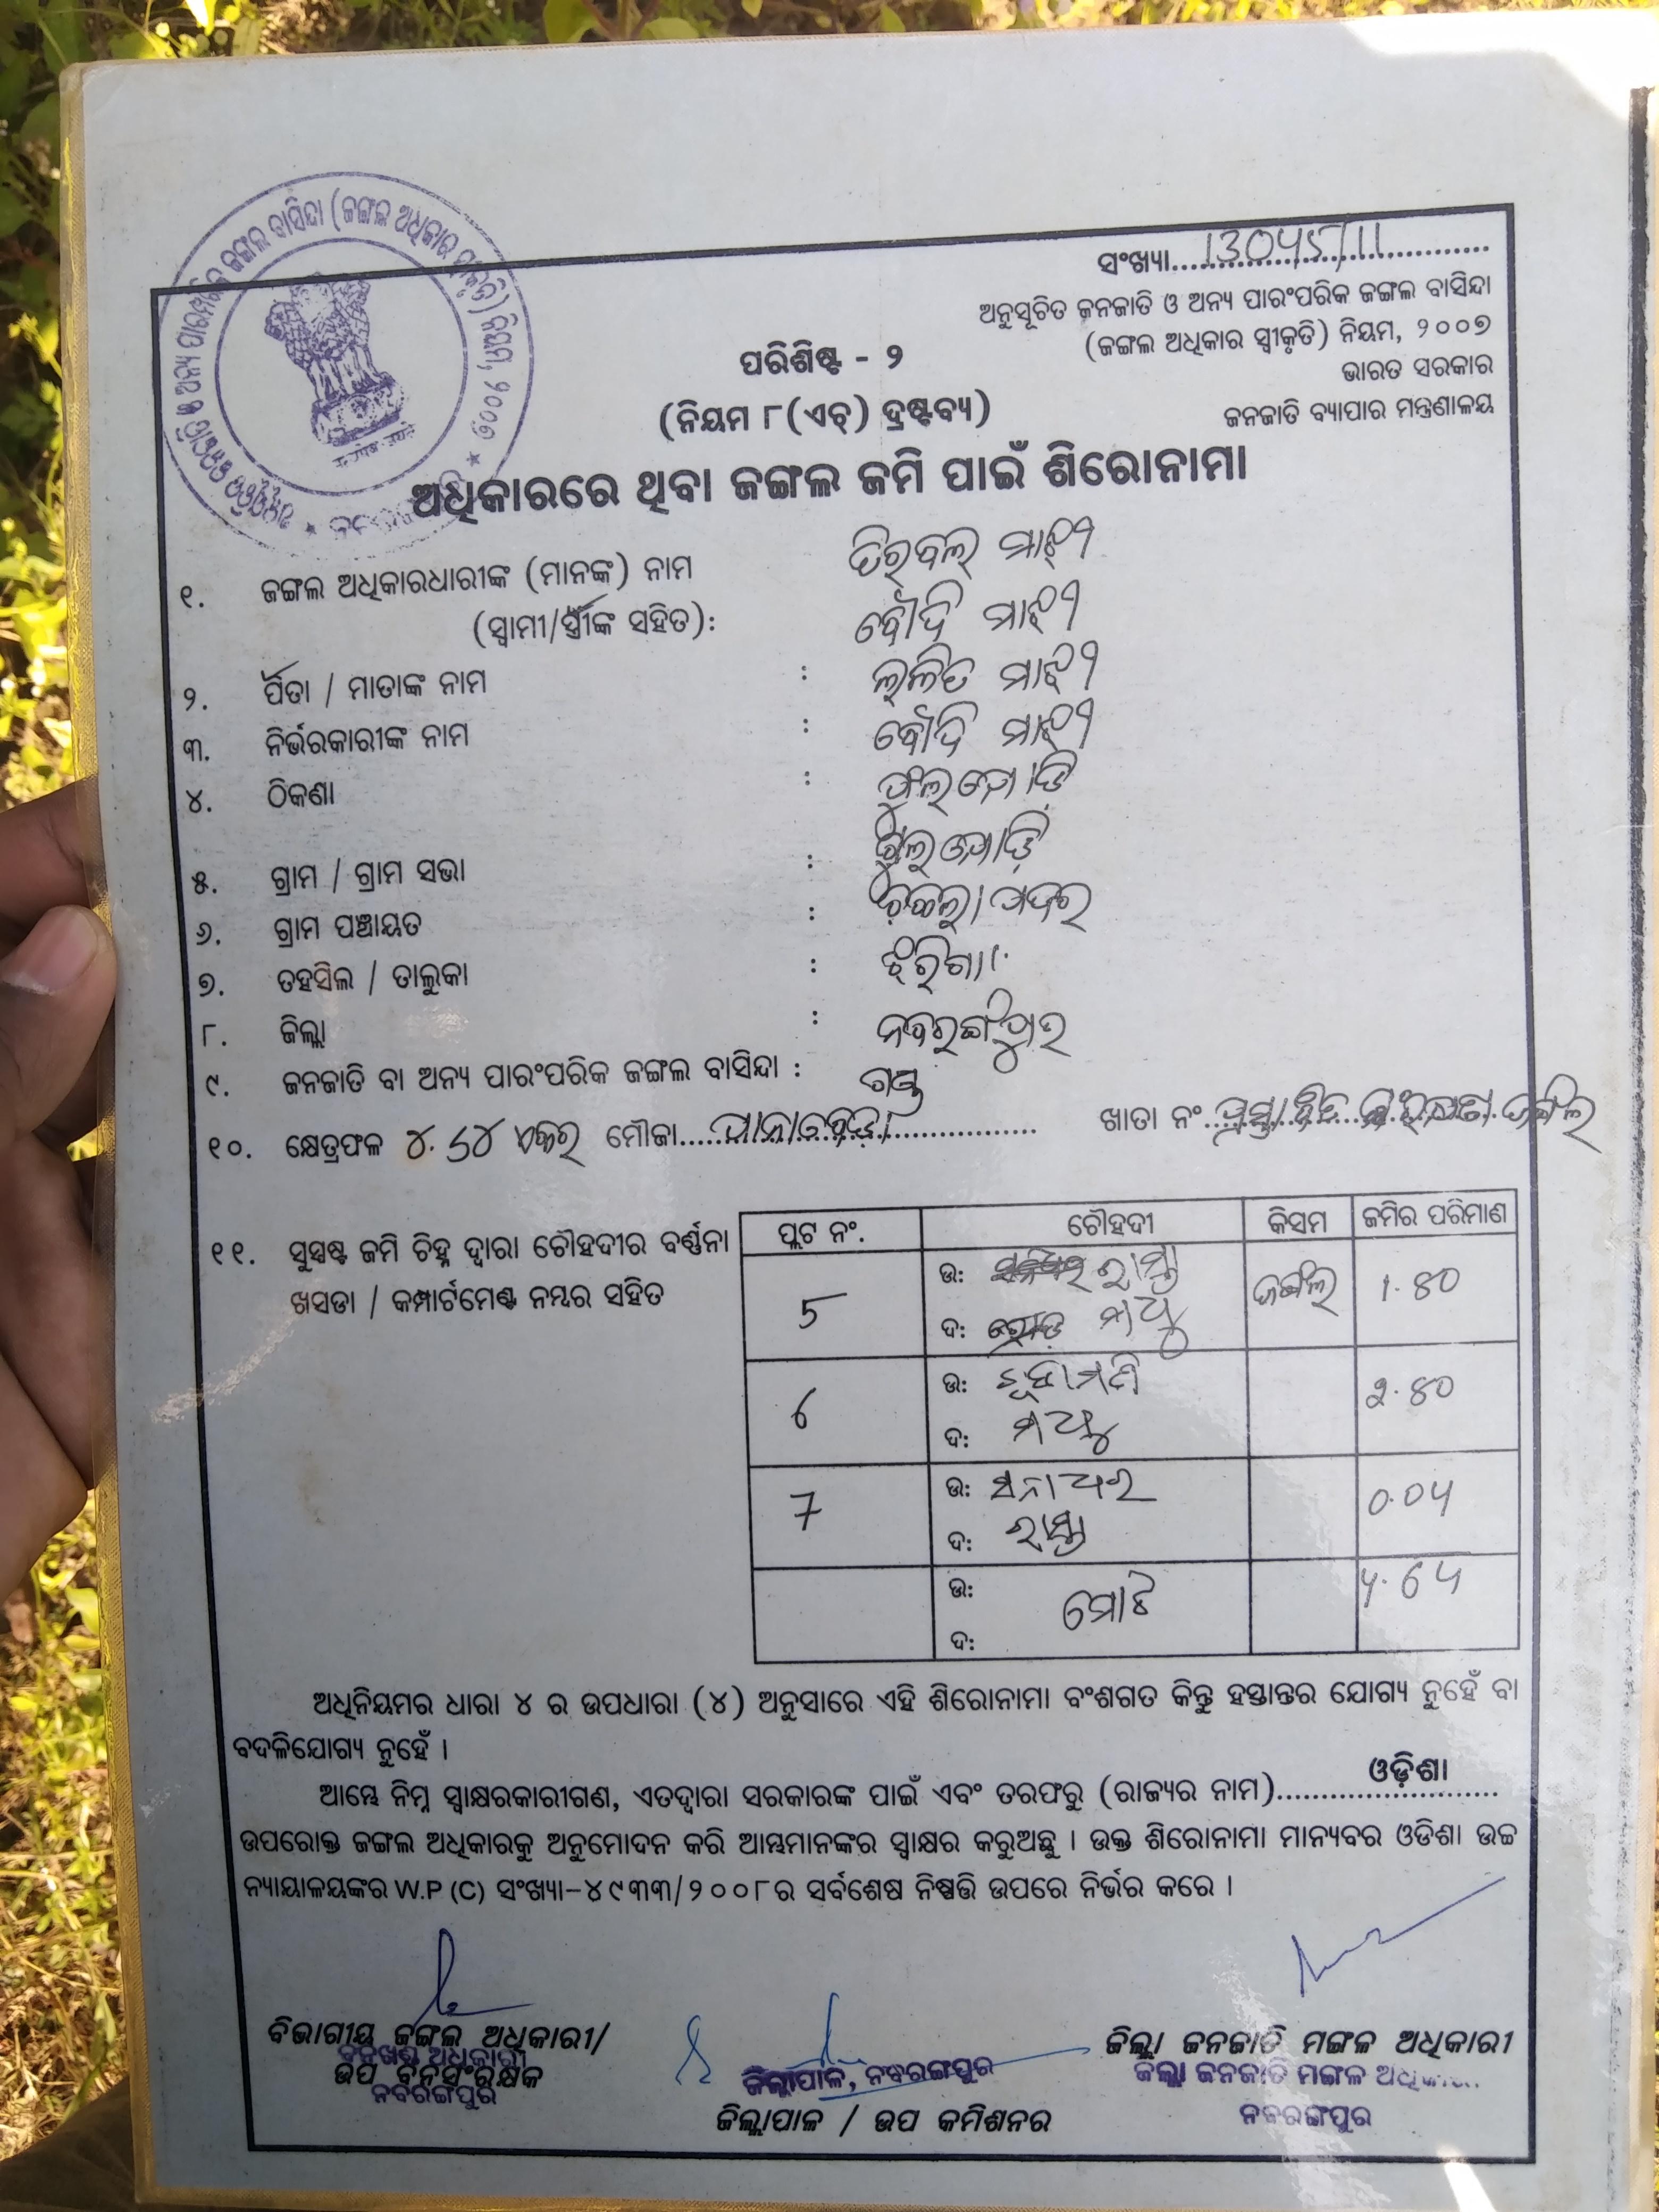 ସଂଖ୍ୟା....13045/11....
ଅନୁସୂଚିତ ଜନଜାତି ଓ ଅନ୍ୟ ପାରଂପରିକ ଜଙ୍ଗଲ ବାସିନ୍ଦା
(ଜଙ୍ଗଲ ଅଧିକାର ସ୍ଵୀକୃତି) ନିୟମ, ୨୦୦୭
ଭାରତ ସରକାର
ଜନଜାତି ବ୍ୟାପାର ମନ୍ତ୍ରଣାଳୟ
ପରିଶିଷ୍ଟ - ୨
(ନିୟମ ୮(ଏଚ୍) ଦ୍ରଷ୍ଟବ୍ୟ)
ଅଧିକାରରେ ଥିବା ଜଙ୍ଗଲ ଜମି ପାଇଁ ଶିରୋନାମା
୧. ଜଙ୍ଗଲ ଅଧିକାରଧାରୀଙ୍କ (ମାନଙ୍କ) ନାମ ମାଝୀ
(ସ୍ୱାମୀ/ସ୍ତ୍ରୀଙ୍କ ସହିତ): ବୌଦି ମାଝୀ
୨. ପିତା / ମାତାଙ୍କ ନାମ : ଲଳିତ ମାଝୀ
୩. ନିର୍ଭରକାରୀଙ୍କ ନାମ : ବୌଦି ମାଝୀ
୪. ଠିକଣା :
୫. ଗ୍ରାମ / ଗ୍ରାମ ସଭା :
୬. ଗ୍ରାମ ପଞ୍ଚାୟତ :
୭. ତହସିଲ / ତାଲୁକା : ଝରିଗାଁ
୮. ଜିଲ୍ଲା : ନବରଙ୍ଗପୁର
୯. ଜନଜାତି ବା ଅନ୍ୟ ପାରଂପରିକ ଜଙ୍ଗଲ ବାସିନ୍ଦା : ଗଣ୍ଡ
୧୦. କ୍ଷେତ୍ରଫଳ ଏକର ମୌଜା........ ଖାତା ନଂ.... ଜଙ୍ଗଲ
୧୧. ସୁସ୍ପଷ୍ଟ ଜମି ଚିହ୍ନ ଦ୍ୱାରା ଚୌହଦୀର ବର୍ଣ୍ଣନା
ଖସଡା / କମ୍ପାର୍ଟମେଣ୍ଟ ନମ୍ବର ସହିତ
ପ୍ଲଟ ନଂ. ଚୌହଦୀ କିସମ ଜମିର ପରିମାଣ
5 ଉ: ରାସ୍ତା ଜଙ୍ଗଲ
ଦ: ମଧୁ
6 ଉ:
ଦ: ମଧୁ
7 ଉ: ସନାଧର 0.04
ଦ: ରାସ୍ତା
ଉ: ମୋଟ
ଦ:
ଅଧିନିୟମର ଧାରା ୪ ର ଉପଧାରା (୪) ଅନୁସାରେ ଏହି ଶିରୋନାମା ବଂଶଗତ କିନ୍ତୁ ହସ୍ତାନ୍ତର ଯୋଗ୍ୟ ନୁହେଁ ବା
ବଦଳିଯୋଗ୍ୟ ନୁହେଁ ।
ଆମ୍ଭେ ନିମ୍ନ ସ୍ୱାକ୍ଷରକାରୀଗଣ, ଏତଦ୍ୱାରା ସରକାରଙ୍କ ପାଇଁ ଏବଂ ତରଫରୁ (ରାଜ୍ୟର ନାମ)....ଓଡ଼ିଶା....
ଉପରୋକ୍ତ ଜଙ୍ଗଲ ଅଧିକାରକୁ ଅନୁମୋଦନ କରି ଆମ୍ଭମାନଙ୍କର ସ୍ୱାକ୍ଷର କରୁଅଛୁ । ଉକ୍ତ ଶିରୋନାମା ମାନ୍ୟବର ଓଡିଶା ଉଚ୍ଚ
ନ୍ୟାୟାଳୟଙ୍କର W.P (C) ସଂଖ୍ୟା-୪୯୩୩/୨୦୦୮ର ସର୍ବଶେଷ ନିଷ୍ପତ୍ତି ଉପରେ ନିର୍ଭର କରେ ।
ବିଭାଗୀୟ ଜଙ୍ଗଲ ଅଧିକାରୀ/
ବନଖଣ୍ଡ ଅଧିକାରୀ
ଉପ ବନସଂରକ୍ଷକ
ନବରଙ୍ଗପୁର
ଜିଲ୍ଲାପାଳ, ନବରଙ୍ଗପୁର
ଜିଲ୍ଲାପାଳ / ଉପ କମିଶନର
ଜିଲ୍ଲା ଜନଜାତି ମଙ୍ଗଳ ଅଧିକାରୀ
ଜିଲ୍ଲା ଜନଜାତି ମଙ୍ଗଳ
ନବରଙ୍ଗପୁର